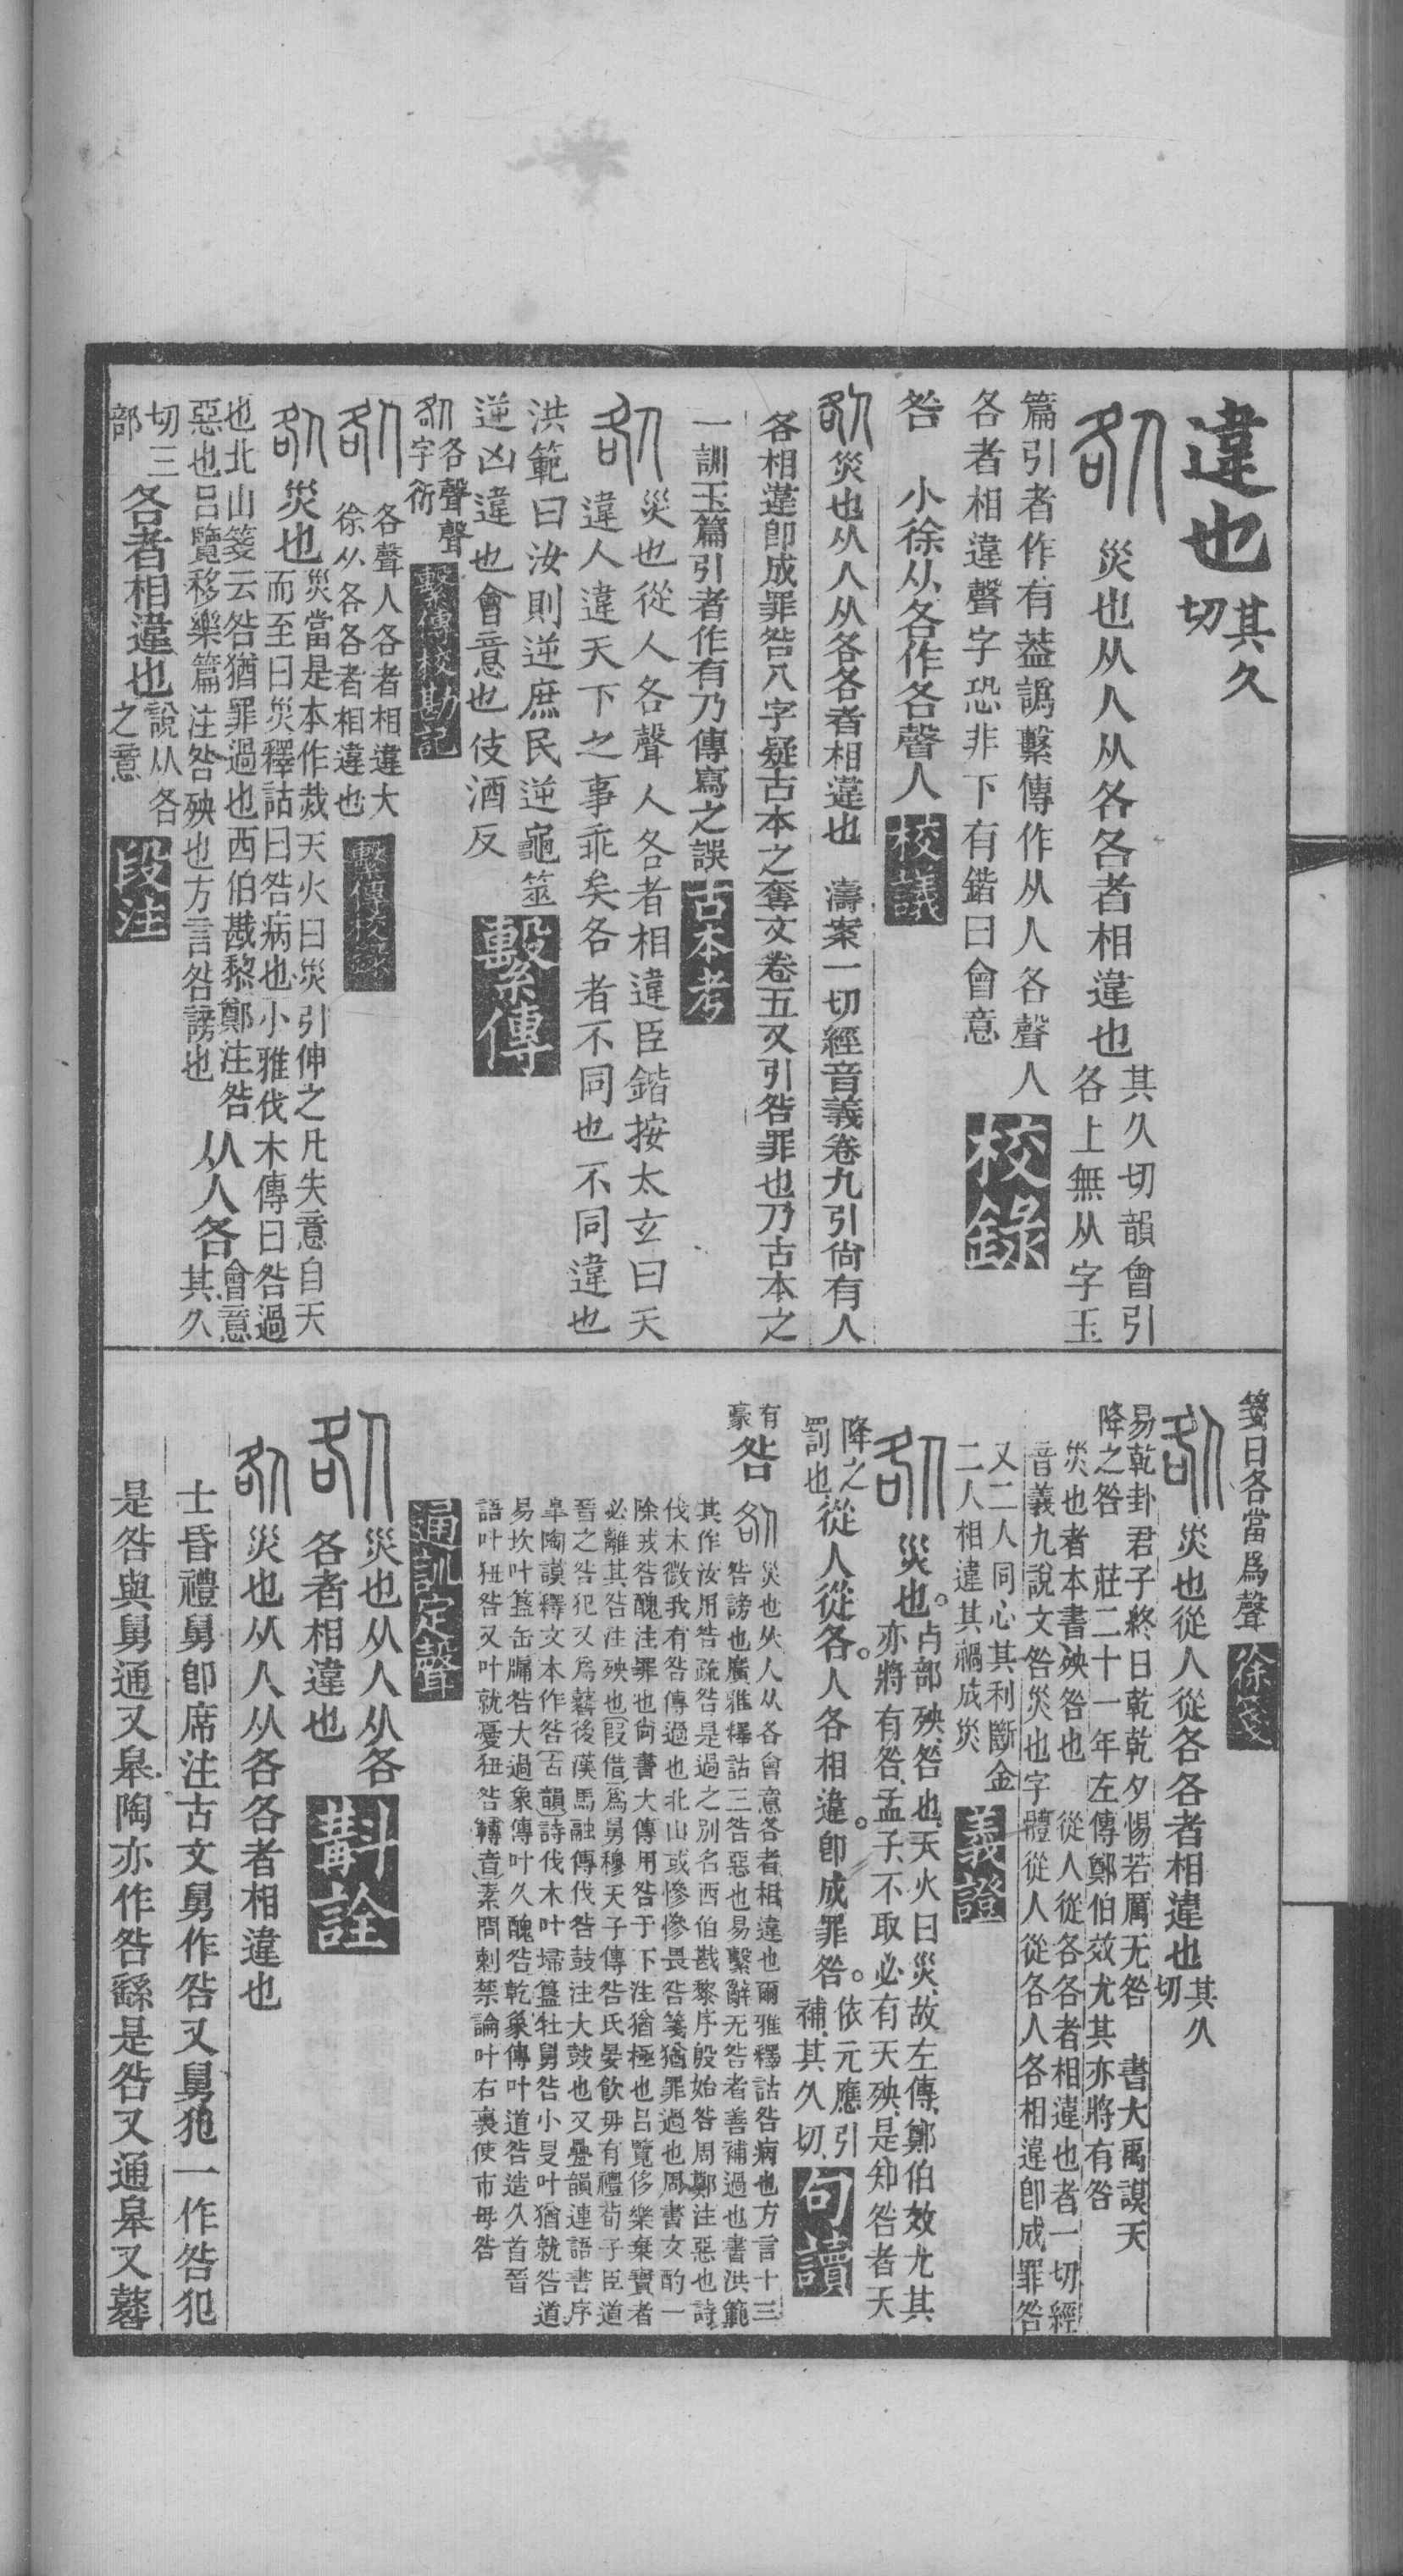 違也其久切
咎 災也从人从各各者相違也其久切韻會引
各上無从字玉
篇引者作有蓋譌繫傳作从人各聲人
各者相違聲字恐非下有鍇曰會意
校錄
咎 小徐从各作各聲人
校議
咎災也从人从各各者相違也 濤案一切經音義卷九引尙有人
各相違卽成罪咎八字疑古本之奪文卷五又引咎罪也乃古本之
一訓玉篇引者作有乃傳寫之誤
古本考
咎災也從人各聲人各者相違臣鍇按太玄曰天
違人違天下之事乖矣各者不同也不同違也
洪範曰汝則逆庶民逆龜筮
逆凶違也會意也伎酒反
繫傳
咎各聲聲
字衍
繫傳校勘記
咎各聲人各者相違大
徐从各各者相違也
繫傳校錄
咎災也災當是本作烖天火曰災引伸之凡失意自天
而至曰災釋詁曰咎病也小雅伐木傳曰咎過
也北山箋云咎猶罪過也西伯戡黎鄭注咎
惡也呂覽侈樂篇注咎殃也方言咎謗也
从人各會意其久
切三
部
各者相違也說从各
之意
段注
箋曰各當爲聲
徐箋
咎災也從人從各各者相違也其久切
易乾卦君子終日乾乾夕惕若厲无咎 書大禹謨天
降之咎 莊二十一年左傳鄭伯效尤其亦將有咎
災也者本書殃咎也 從人從各各者相違也者一切經
音義九說文咎災也字體從人從各人各相違卽成罪咎
又二人同心其利斷金
二人相違其禍成災
義證
咎災也。占部殃、咎也、天火曰災、故左傳、鄭伯效尤其
亦將有咎、孟子、不取必有天殃、是知咎者天
降之
罰也從人從各。人各相違。卽成罪咎。依元應引
補、其久切、
句讀
有
豪咎
咎災也从人从各會意各者相違也爾雅釋詁咎病也方言十三
咎謗也廣雅釋詁三咎惡也易繫辭无咎者善補過也書洪範
其作汝用咎疏咎是過之別名西伯戡黎序殷始咎周鄭注惡也詩
伐木微我有咎傳過也北山或慘慘畏咎箋猶罪過也周書文酌一
除戎咎醜注罪也尙書大傳用咎于下注猶極也呂覽侈樂棄寶者
必離其咎注殃也(叚借)爲舅穆天子傳咎氏晏飮毋有禮荀子臣道
晉之咎犯又爲鼛後漢馬融傳伐咎鼓注大鼓也又疊韻連語書序
皋陶謨釋文本作咎(古韻)詩伐木叶埽簋牡舅咎小旻叶猶就咎道
易坎叶簋缶牖咎大過象傳叶久醜咎乾象傳叶道咎造久首晉
語叶狃咎又叶就憂狃咎(轉音)素問刺禁論叶右裏使市毋咎
通訓定聲
咎災也从人从各
各者相違也
斠詮
咎災也从人从各各者相違也
士昏禮舅卽席注古文舅作咎又舅犯一作咎犯
是咎與舅通又皋陶亦作咎繇是咎又通皋又鼛